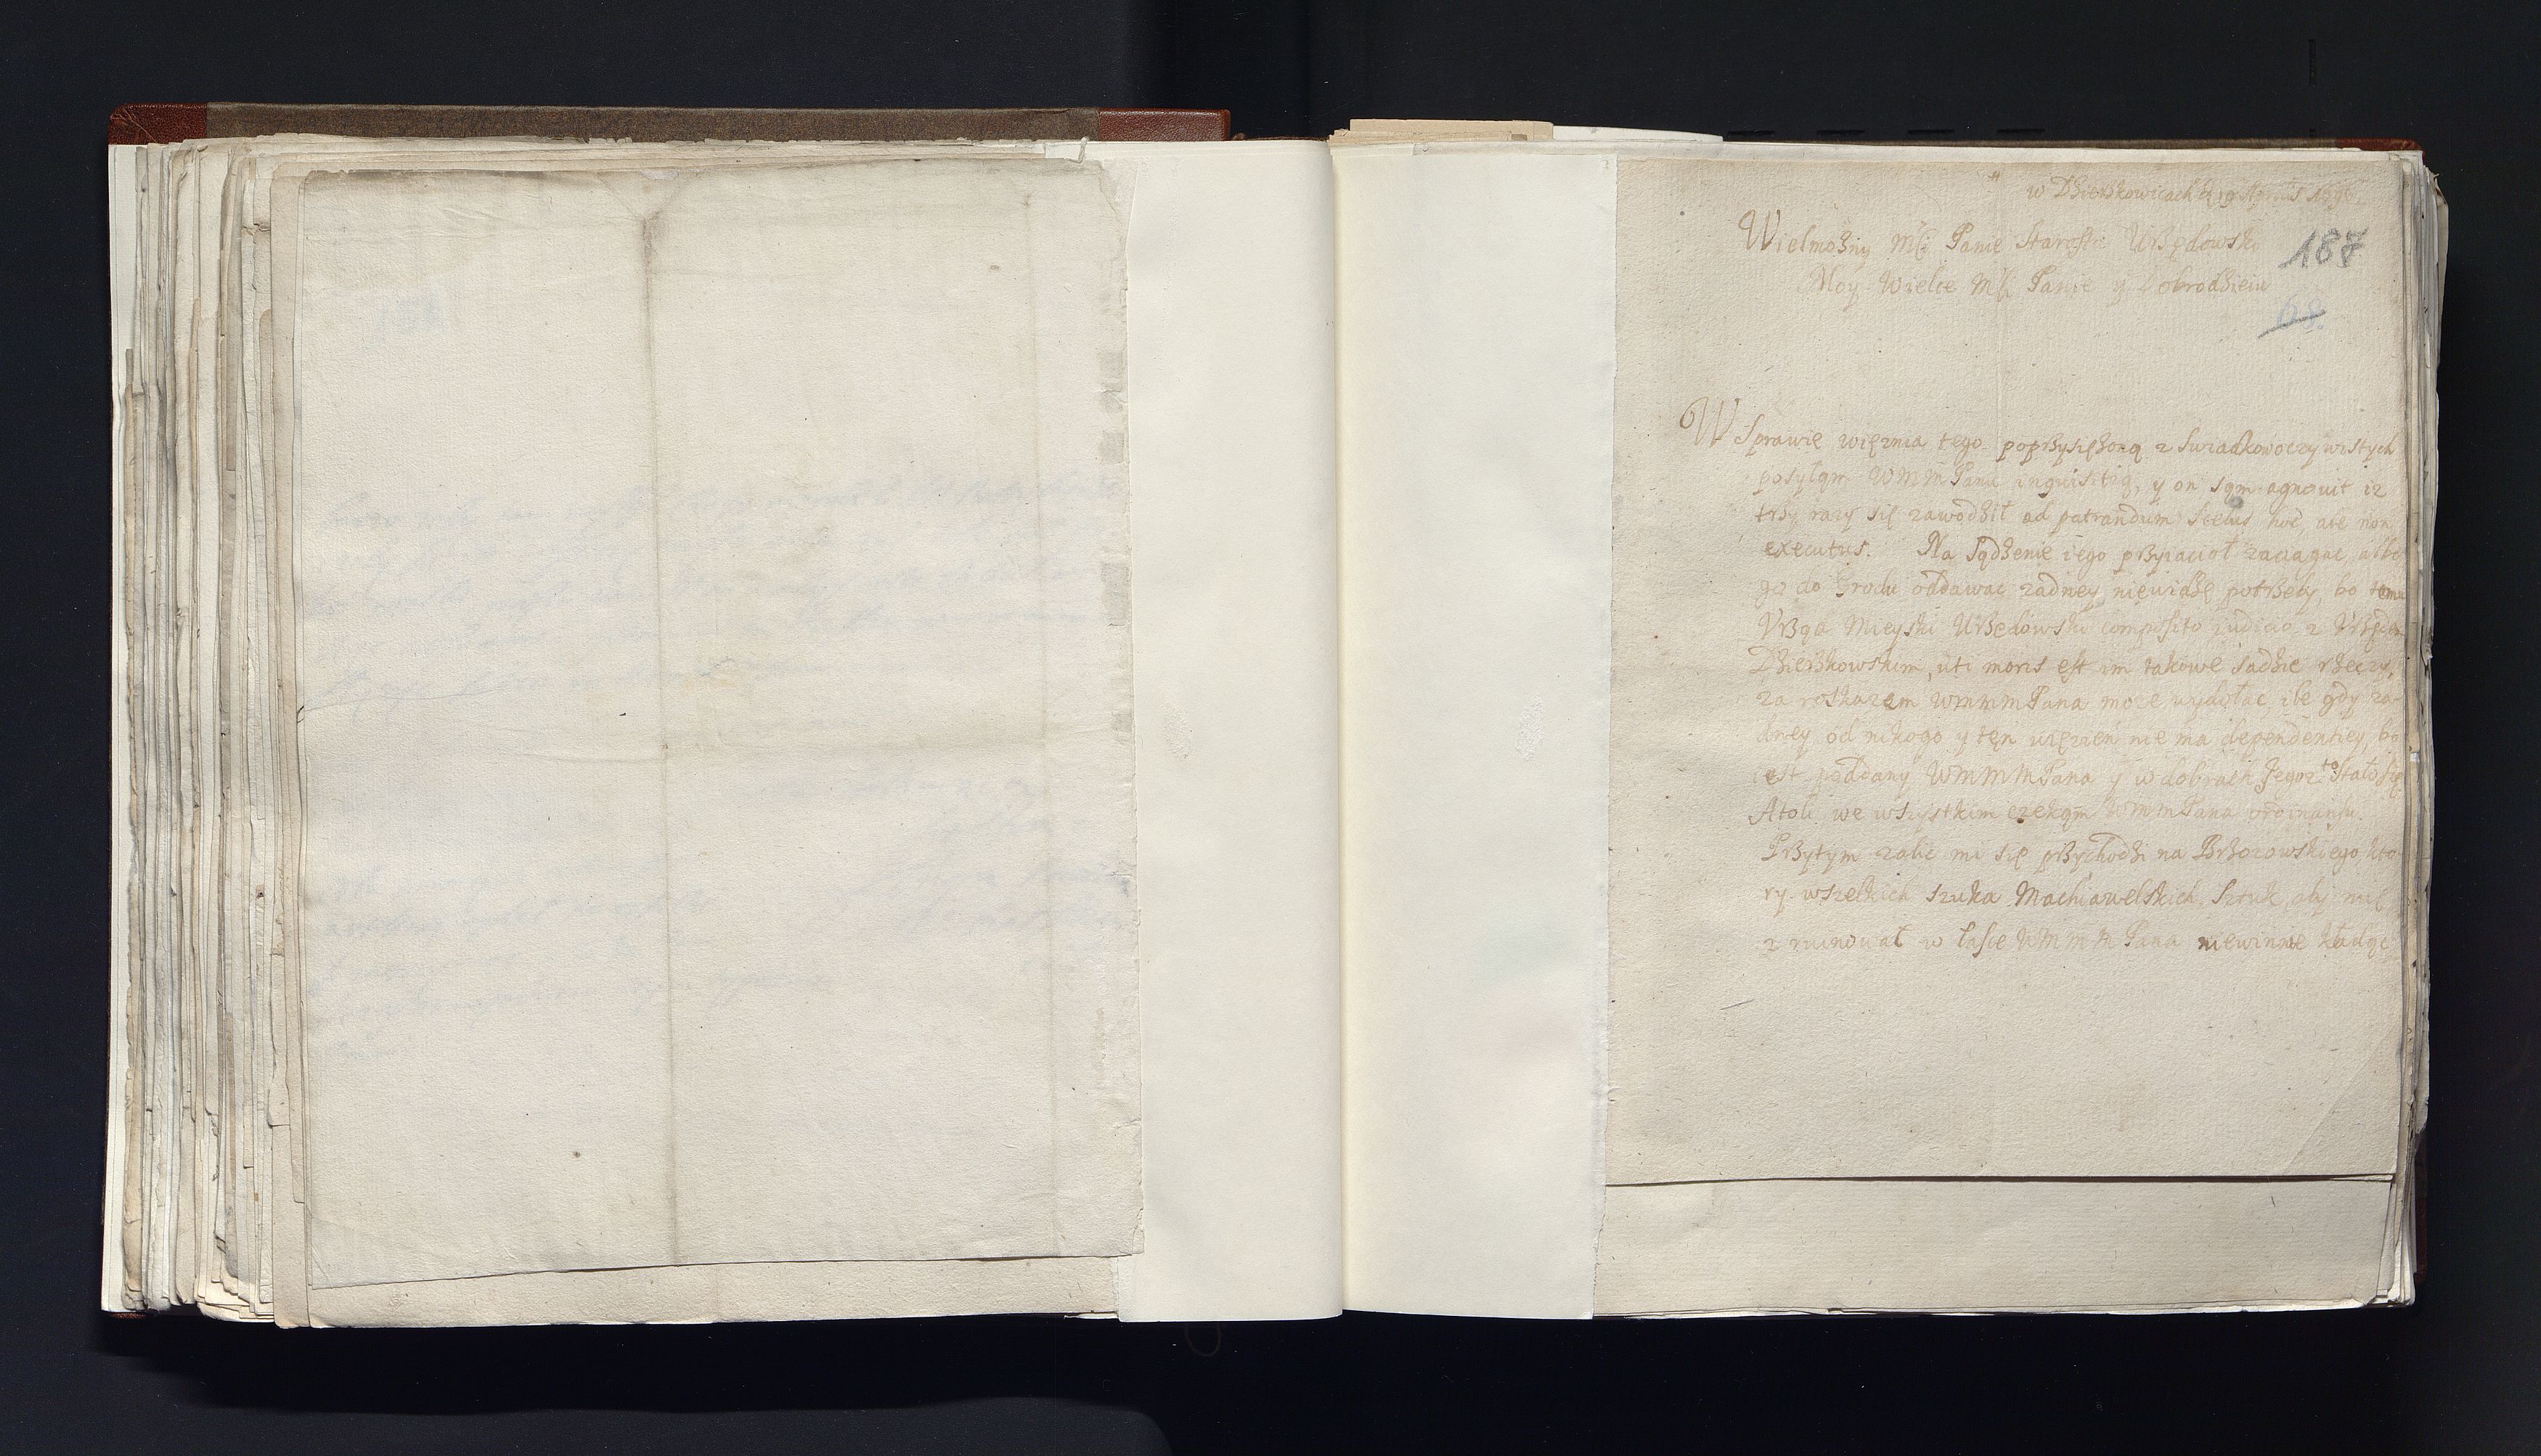 w Dzierzkowicach d 19
Wielmożny Mći Panie Starosto Urzędowski
187
Moy Wielce Mći Panie y Dobrodzieiu
68.
W Sprawie więznia tego poprzysiężoną z swiadkow oczywistych
posyłąm WMM Panu inquisitią, y on sąm agnovit iz
trzy razy się zawodził ad patrandum scelus hoc, ale non
executus. Na sądzenie iego przyiacioł zaciagac, albo
go do Grodu oddawac zadney niewidzę potrzeby, bo temu
Vrząd Mieyski Urzedowski composito iudicio z Vrzędem
Dzierzkowskim, uti moris est im takowe sadzic rzeczy,
za roskazem WMMM Pana moze wydołac, ile gdy za-
dney od nikogo y tęn więzień nie ma dependentiey, bo
iest poddany WMMM Pana y w dobrach Jegoz to stało się.
Atoli we wszystkim czekąm WMM Pana ordinansu.
Przytym zalic mi się przychodzi na Brzozowskiego kto-
ry wszelkich szuka Machiawelskich sztuk, aby mię
z ruinował w łasce WMMM Pana niewinnie kładąc